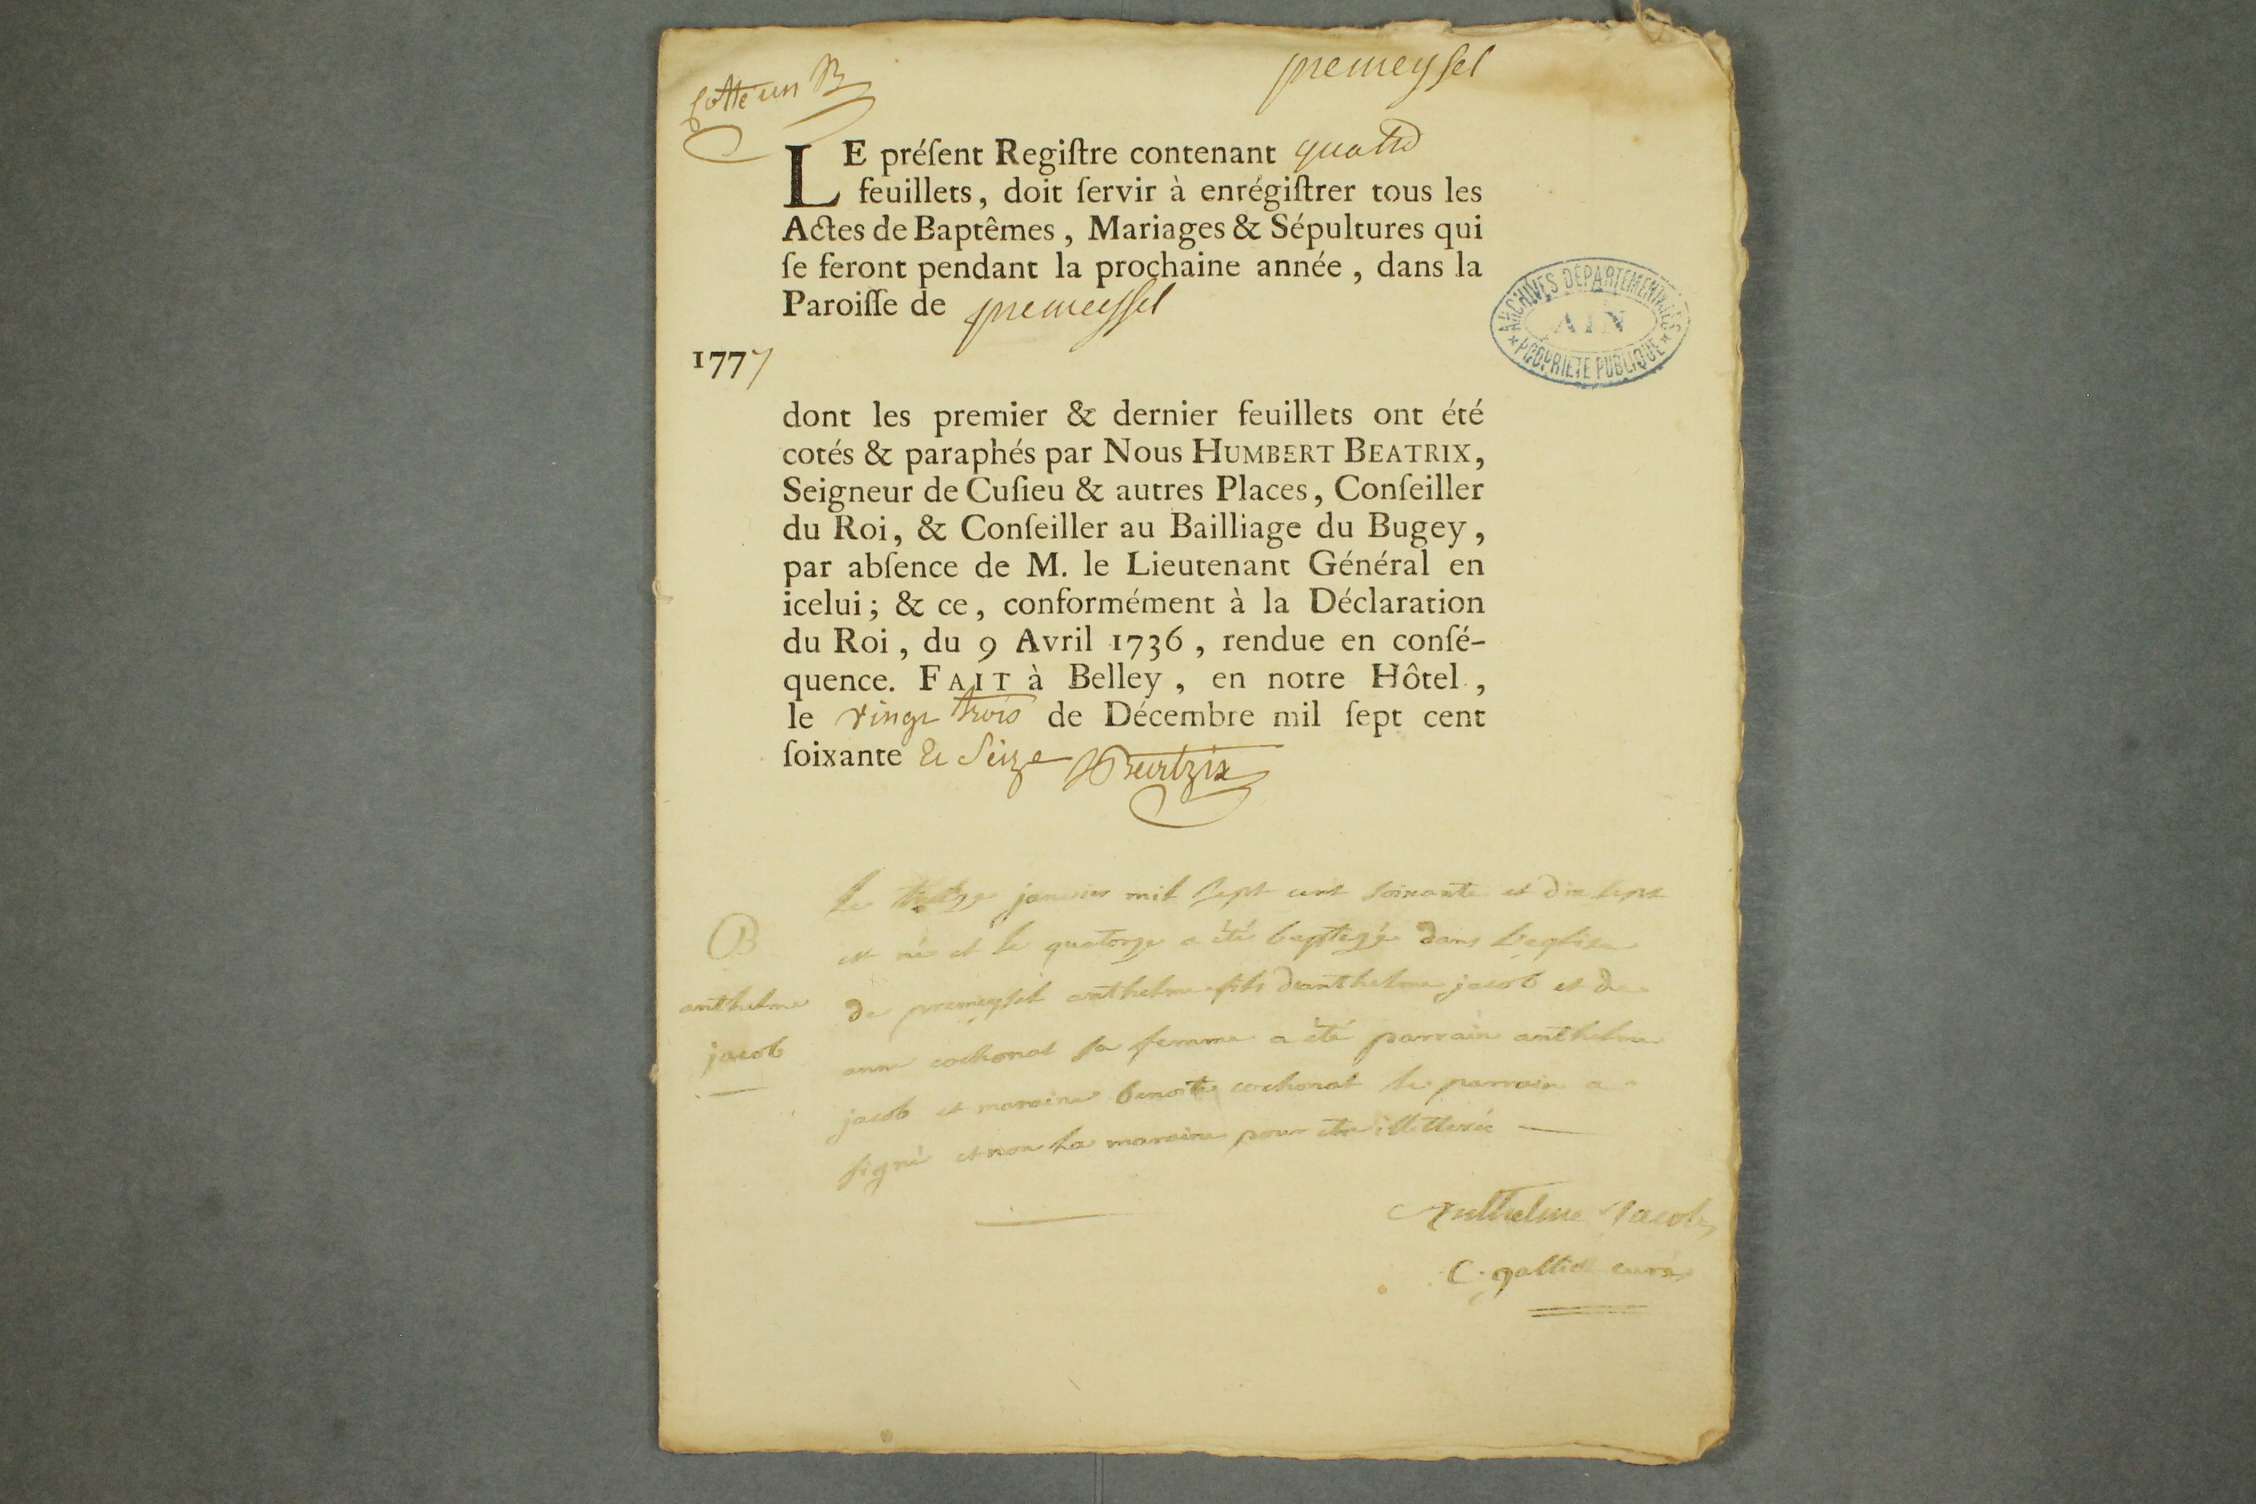 Cotté un B
premeyssel
LE préſent Regiſtre contenant quatre
feuillets, doit ſervir à enrégiſtrer tous les
Actes de Baptêmes, Mariages & Sépultures qui
ſe feront pendant la prochaine année, dans la
Paroiſſe de premeyssel
ARCHIVES DÉPARTEMENTALES
AIN
* PROPRIÉTÉ PUBLIQUE *
1777
dont les premier & dernier feuillets ont été
cotés & paraphés par Nous HUMBERT BEATRIX,
Seigneur de Cuſieu & autres Places, Conſeiller
du Roi, & Conſeiller au Bailliage du Bugey,
par abſence de M. le Lieutenant Général en
icelui; & ce, conformément à la Déclaration
du Roi, du 9 Avril 1736, rendue en conſé-
quence. FAIT à Belley, en notre Hôtel,
le vingt trois de Décembre mil ſept cent
ſoixante et Seize Beatrix
Le treize janvier mil sept cent soixante et dix sept
est né et le quatorze a été baptizé dans l'eglise
de premeyssel anthelme fils d'anthelme jacob et de
anne cochonat sa femme a été parrain anthelme
jacob et maraine benoite cochonat le parrain a
signé et non la maraine pour être illettrée
B
anthelme
jacob
Anthelme Jacob
C. galliet curé